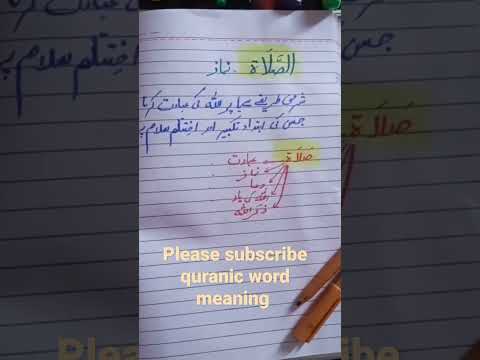 الصَّلَاة . نماز
شرعی طریقے پر اللہ کی عبادت کرنا
جس کی ابتداء تکبیر اور اختتام سلام پر
صَلَاة عبادت
نماز
دعا
اللہ کی یاد
ذکر اللہ
Please subscribe
quranic word
meaning